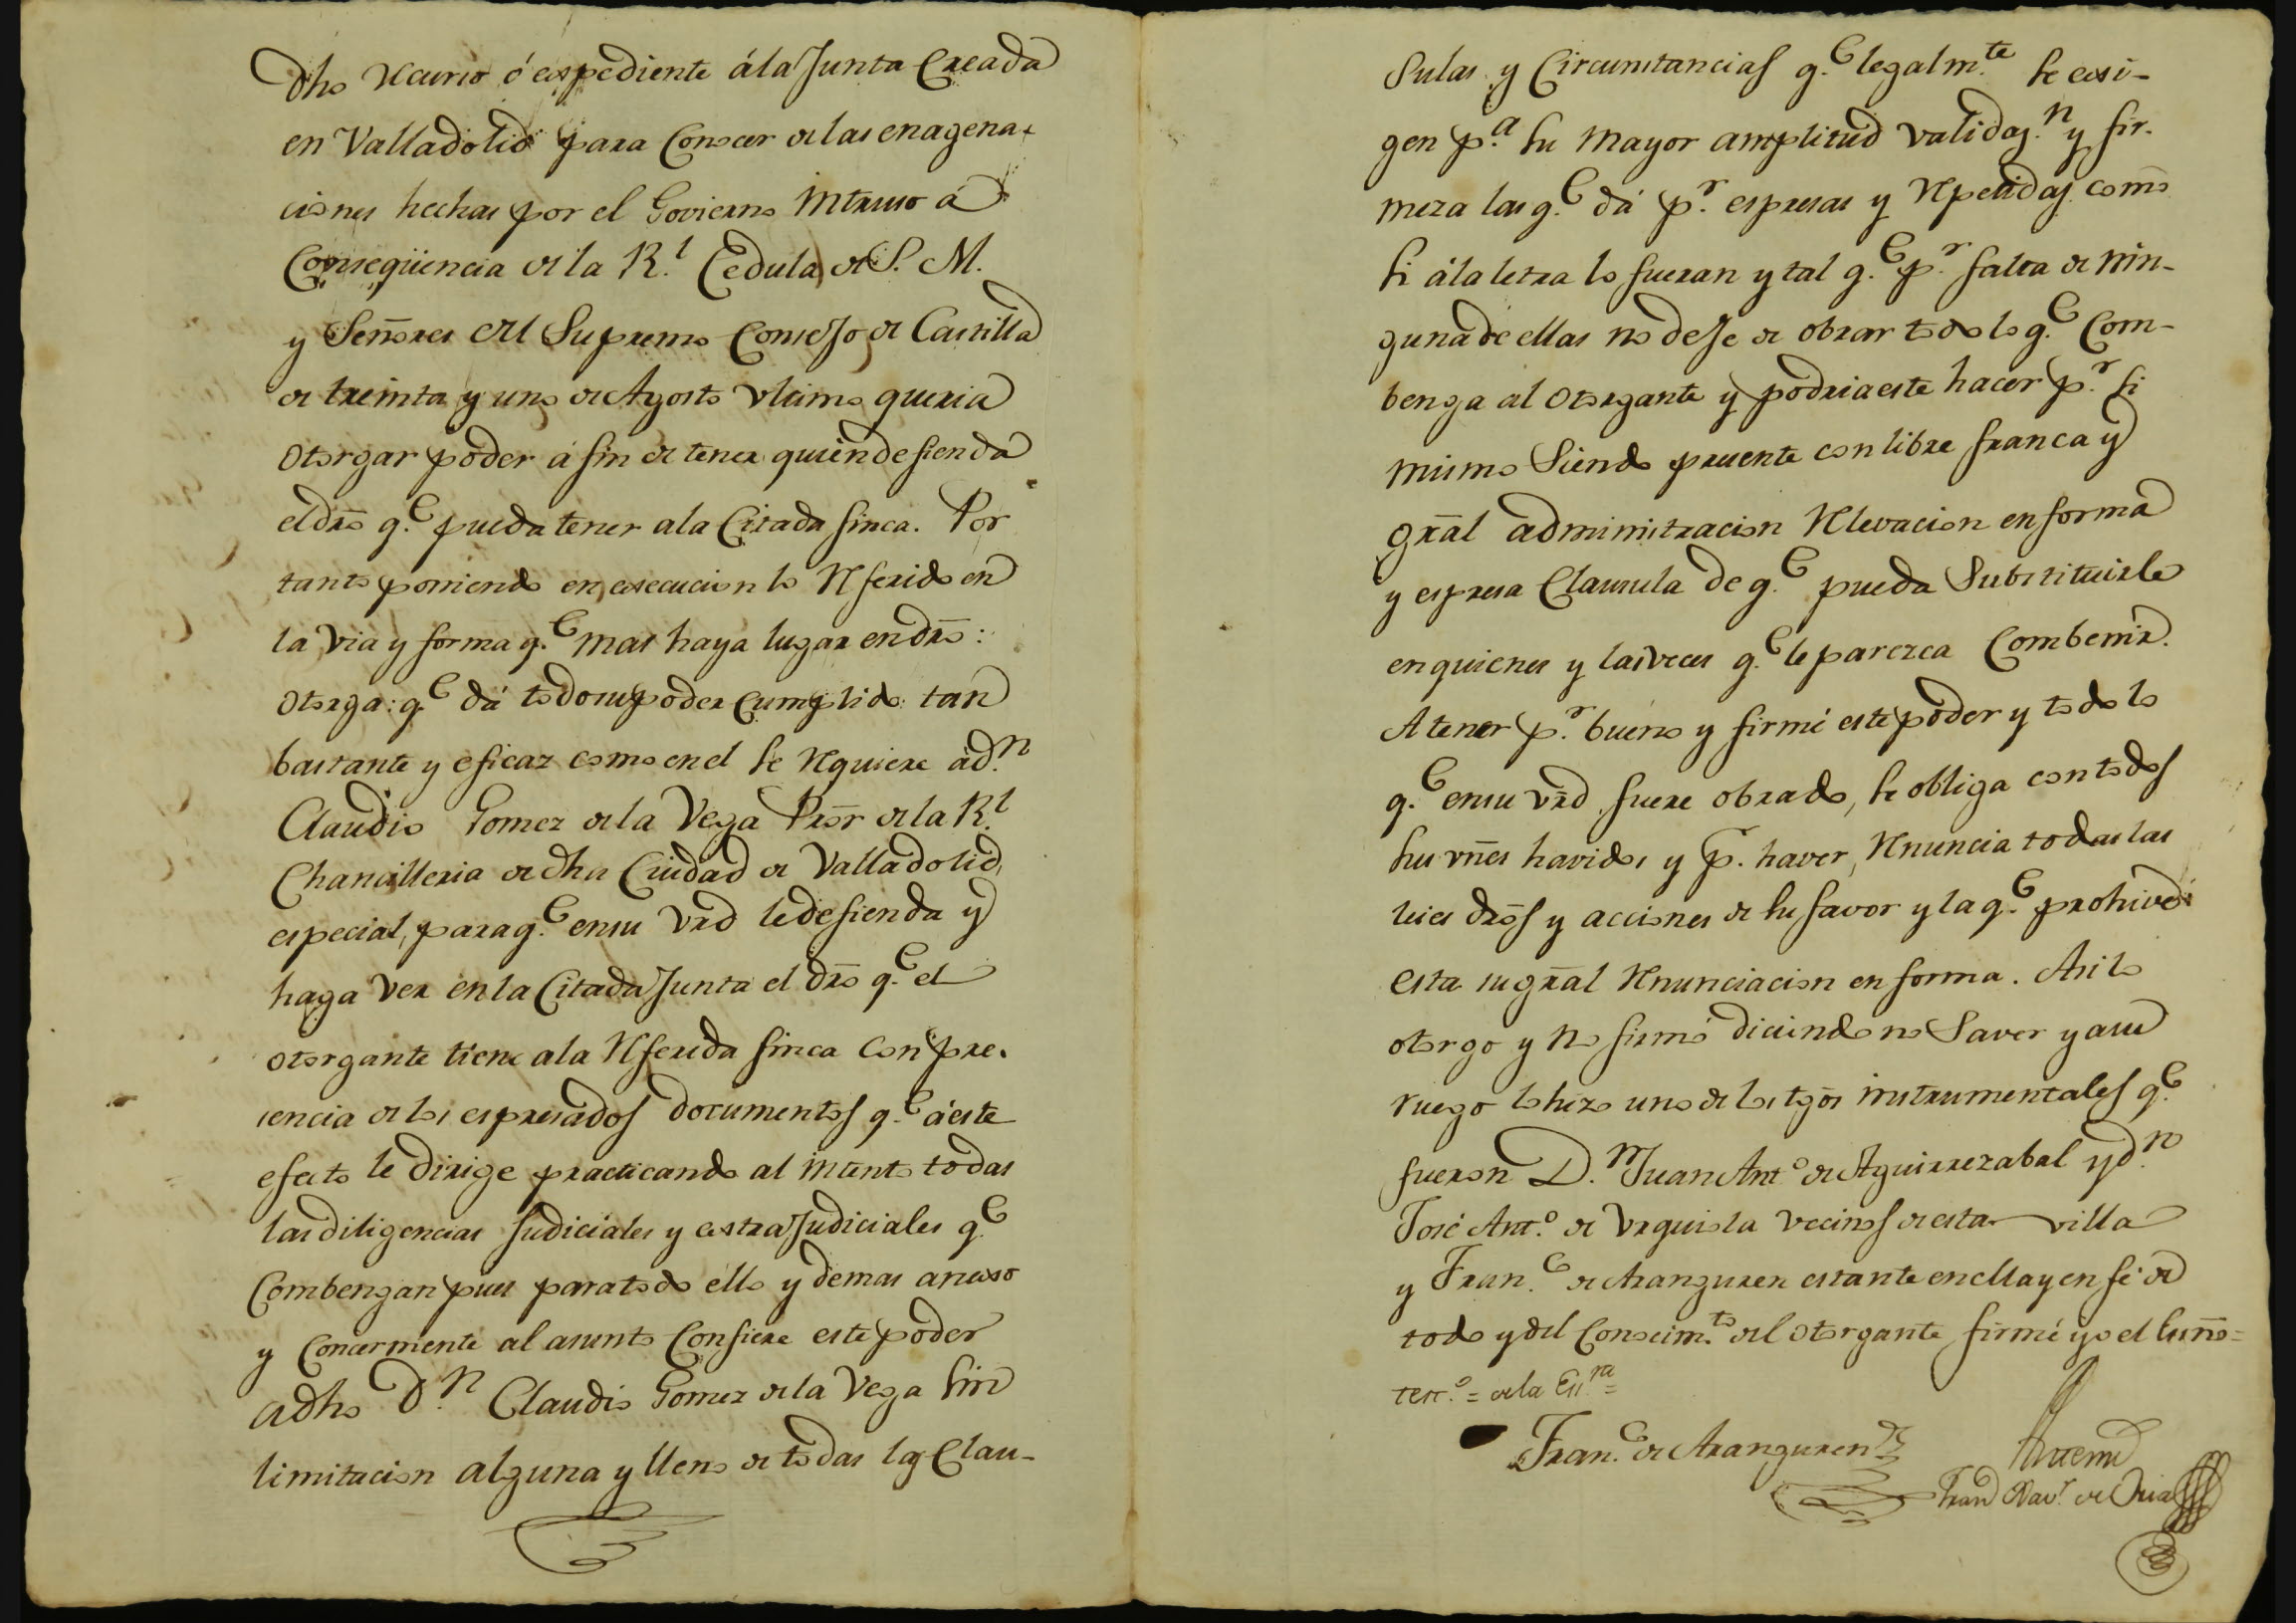 dho Recurso ó expediente á la Junta Creada
en Valladolid para Conocer de las enagena-
ciones hechas por el Govierno Intruso á
Conseqüencia de la R.l Cedula de S. M.
y Señores del Supremo Consejo de Castilla
de treinta y uno de Agosto ultimo queria
otorgar poder á fin de tener quien defienda
el dro q.e pueda tener a la Citada finca. Por
tanto poniendo en execucion lo Referido en
la via y forma q.e mas haya lugar en dro:
otorga: q.e dá todo su poder Cumplido tan
bastante y eficaz como en el se Requiere á d.n
Claudio Gomez de la Vega Pror de la R.l
Chancilleria de dha Ciudad de Valladolid,
especial, para q.e en su vrd le defienda y
haga ver en la Citada Junta el dro q.e el
otorgante tiene a la Referida finca con pre-
sencia de los espresados documentos q.e á este
efecto le dirige practicando al intento todas
las diligencias Judiciales y extraJudiciales q.e
Combengan pues para todo ello y demas anexo
y Concerniente al asunto Confiere este poder
a dho D.n Claudio Gomez de la Vega sin
limitacion alguna y lleno de todas las Clau-
sulas y Circunstancias q.e legalm.te se exi-
gen p.a su mayor amplitud validaz.n y fir-
meza las q.e dá p.r espresas y Repetidas como
si á la letra lo fueran y tal q.e p.r falta de nin-
guna de ellas no deje de obrar todo lo q.e Com-
benga al otorgante y podria este hacer p.r si
mismo siendo presente con libre franca y
gral administracion Relevacion en forma
y espresa Clausula de q.e pueda Substituirle
en quienes y las veces q.e le parezca Combenir.
A tener p.r bueno y firme este poder y todo lo
q.e en su vrd fuere obrado, se obliga con todos
sus vnes havidos y p. haver, Renuncia todas las
leies dros y acciones de su favor y la q.e prohive
esta su gral Renunciacion en forma. Asi lo
otorgo y no firmó diciendo no Saver y a su
ruego lo hizo uno de los tgos instrumentales q.e
fueron D.n Juan Ant.o de Aguirrezabal y d.n
José Ant.o de Urquiola vecinos de esta villa
y Fran.co de Aranguren estante en ella y en fé de
todo y del Conocim.to del otorgante firmé yo el ssno=
test.o = de la Es.ra =
Fran.co de Aranguren
Antemi
Fran.co Xav.r de Oria